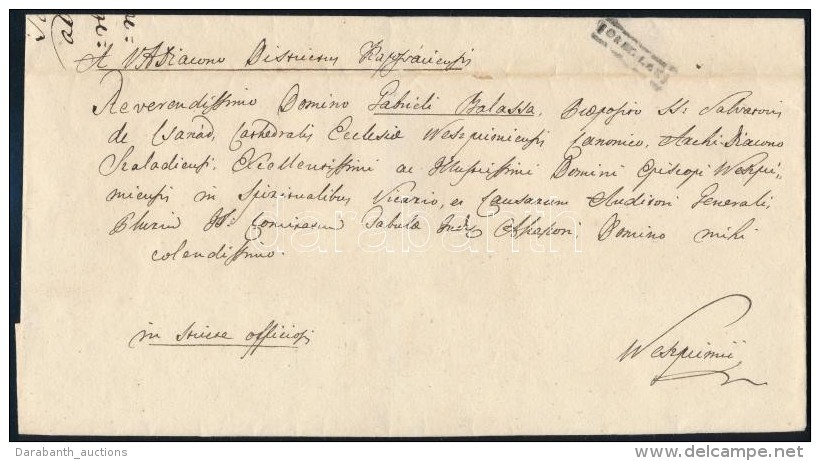 A VADiacono Districtus Kapornensis
Reverendissimo Domino Gabrieli Balassa, Praeposito SS: Salvatoris
de Csanád, Cathedralis Ecclesiae Weszprimiensis Canonico, Archi Diacono
Szaladiensi, Excellentissimi ac Illustrissimi Domini Episcopi Weszpri=
miensis in Spiritualibus Vicario, et Causarum Auditori Generali,
Plurium Comitatuum Tabulae Assessori, Domino mihi
colendissimo.
officiosi
Weszprimii
darabanth
Darabanth_auctions
delcampe.net